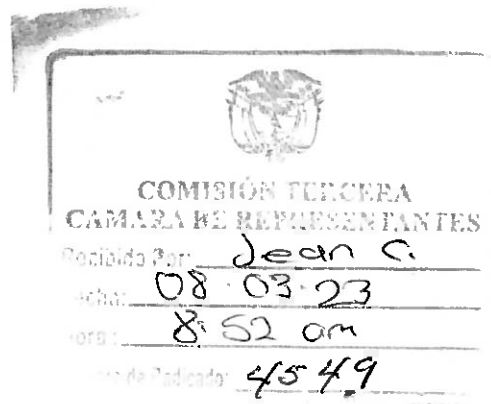 COMISIÓN TERCERA
CAMARA DE REPRESENTANTES
Recibido Por: Jean C.
Fecha: 08 - 03 - 23
Hora: 8:52 am
de Radicado: 4549